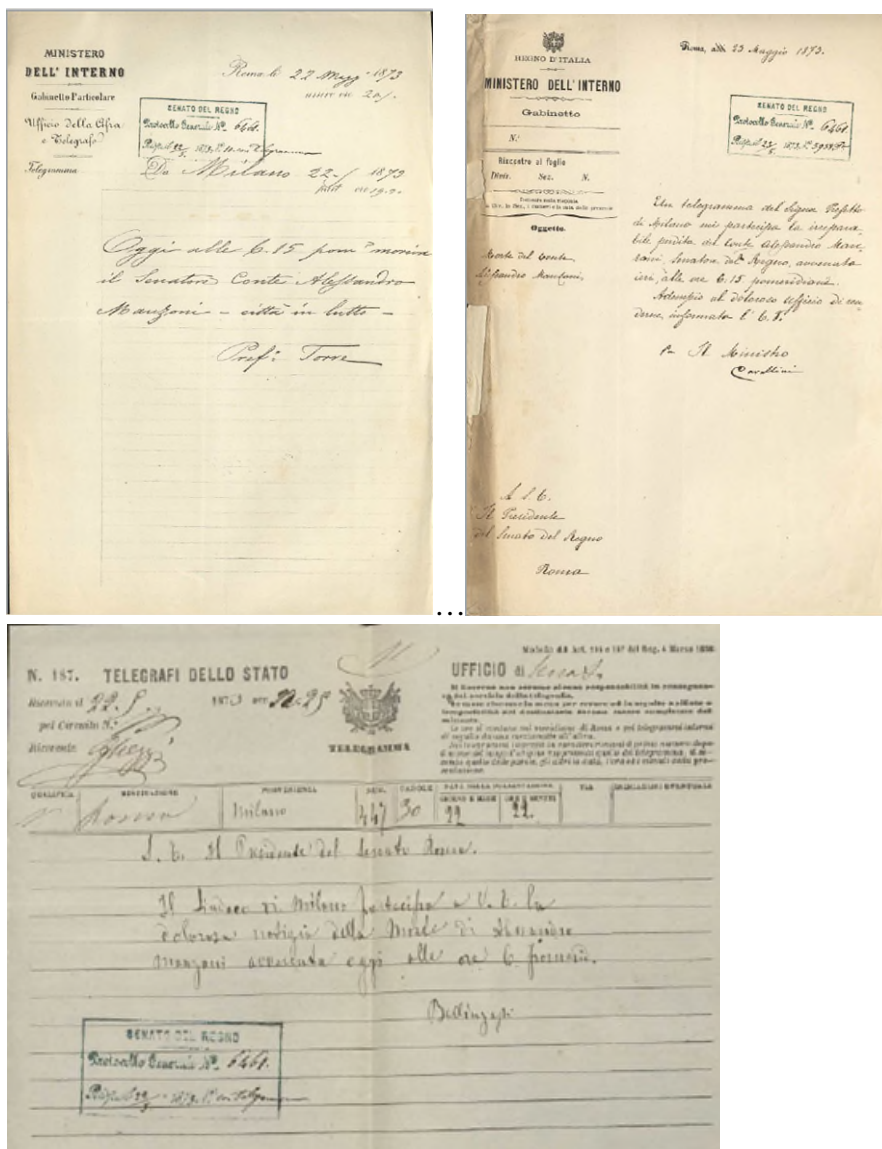 MINISTERO
DELL' INTERNO
Gabinetto Particolare
Ufficio Della Cifra
e Telegrafo
Telegramma
Roma li 22 Magg. 1873
SENATO DEL REGNO
Protocollo Generale N.º 6461.
Da Milano 22 1873
Oggi alle 6.15 pom.
il Senatore Conte Alessandro
Manzoni – città in lutto –
Pref. Torre
REGNO D'ITALIA
MINISTERO DELL'INTERNO
Gabinetto
N.º
Riscontro al foglio
Divis. Sez. N.
Oggetto
Morte del Conte
Alessandro Manzoni.
Roma, addì 23 Maggio 1873.
SENATO DEL REGNO
Protocollo Generale N.º 6461.
Un telegramma del Signor Prefetto
di Milano mi partecipa la irrepara
bile perdita del Conte Alessandro Man
zoni, Senatore del Regno, avvenuta
ieri, alle ore 6.15 pomeridiane.
Adempio al doloroso ufficio di ren
derne informata l'E. V.
Il Ministro
Cavallini
A S. E.
Il Presidente
del Senato del Regno
Roma
...
N. 187. TELEGRAFI DELLO STATO
Ricevuto il 22.5. 1873 ore
pel Circuito N.º
Ricevente
TELEGRAMMA
UFFICIO di Senato
QUALIFICA DESTINAZIONE PROVENIENZA NUM. PAROLE VIA
Roma Milano 447 30 22 22.
S. E. Il Presidente del Senato Roma.
Il Sindaco di Milano partecipa a V. E. la
dolorosa notizia della Morte di Alessandro
Manzoni avvenuta oggi alle ore 6 pomerid.
SENATO DEL REGNO
Protocollo Generale N.º 6461.